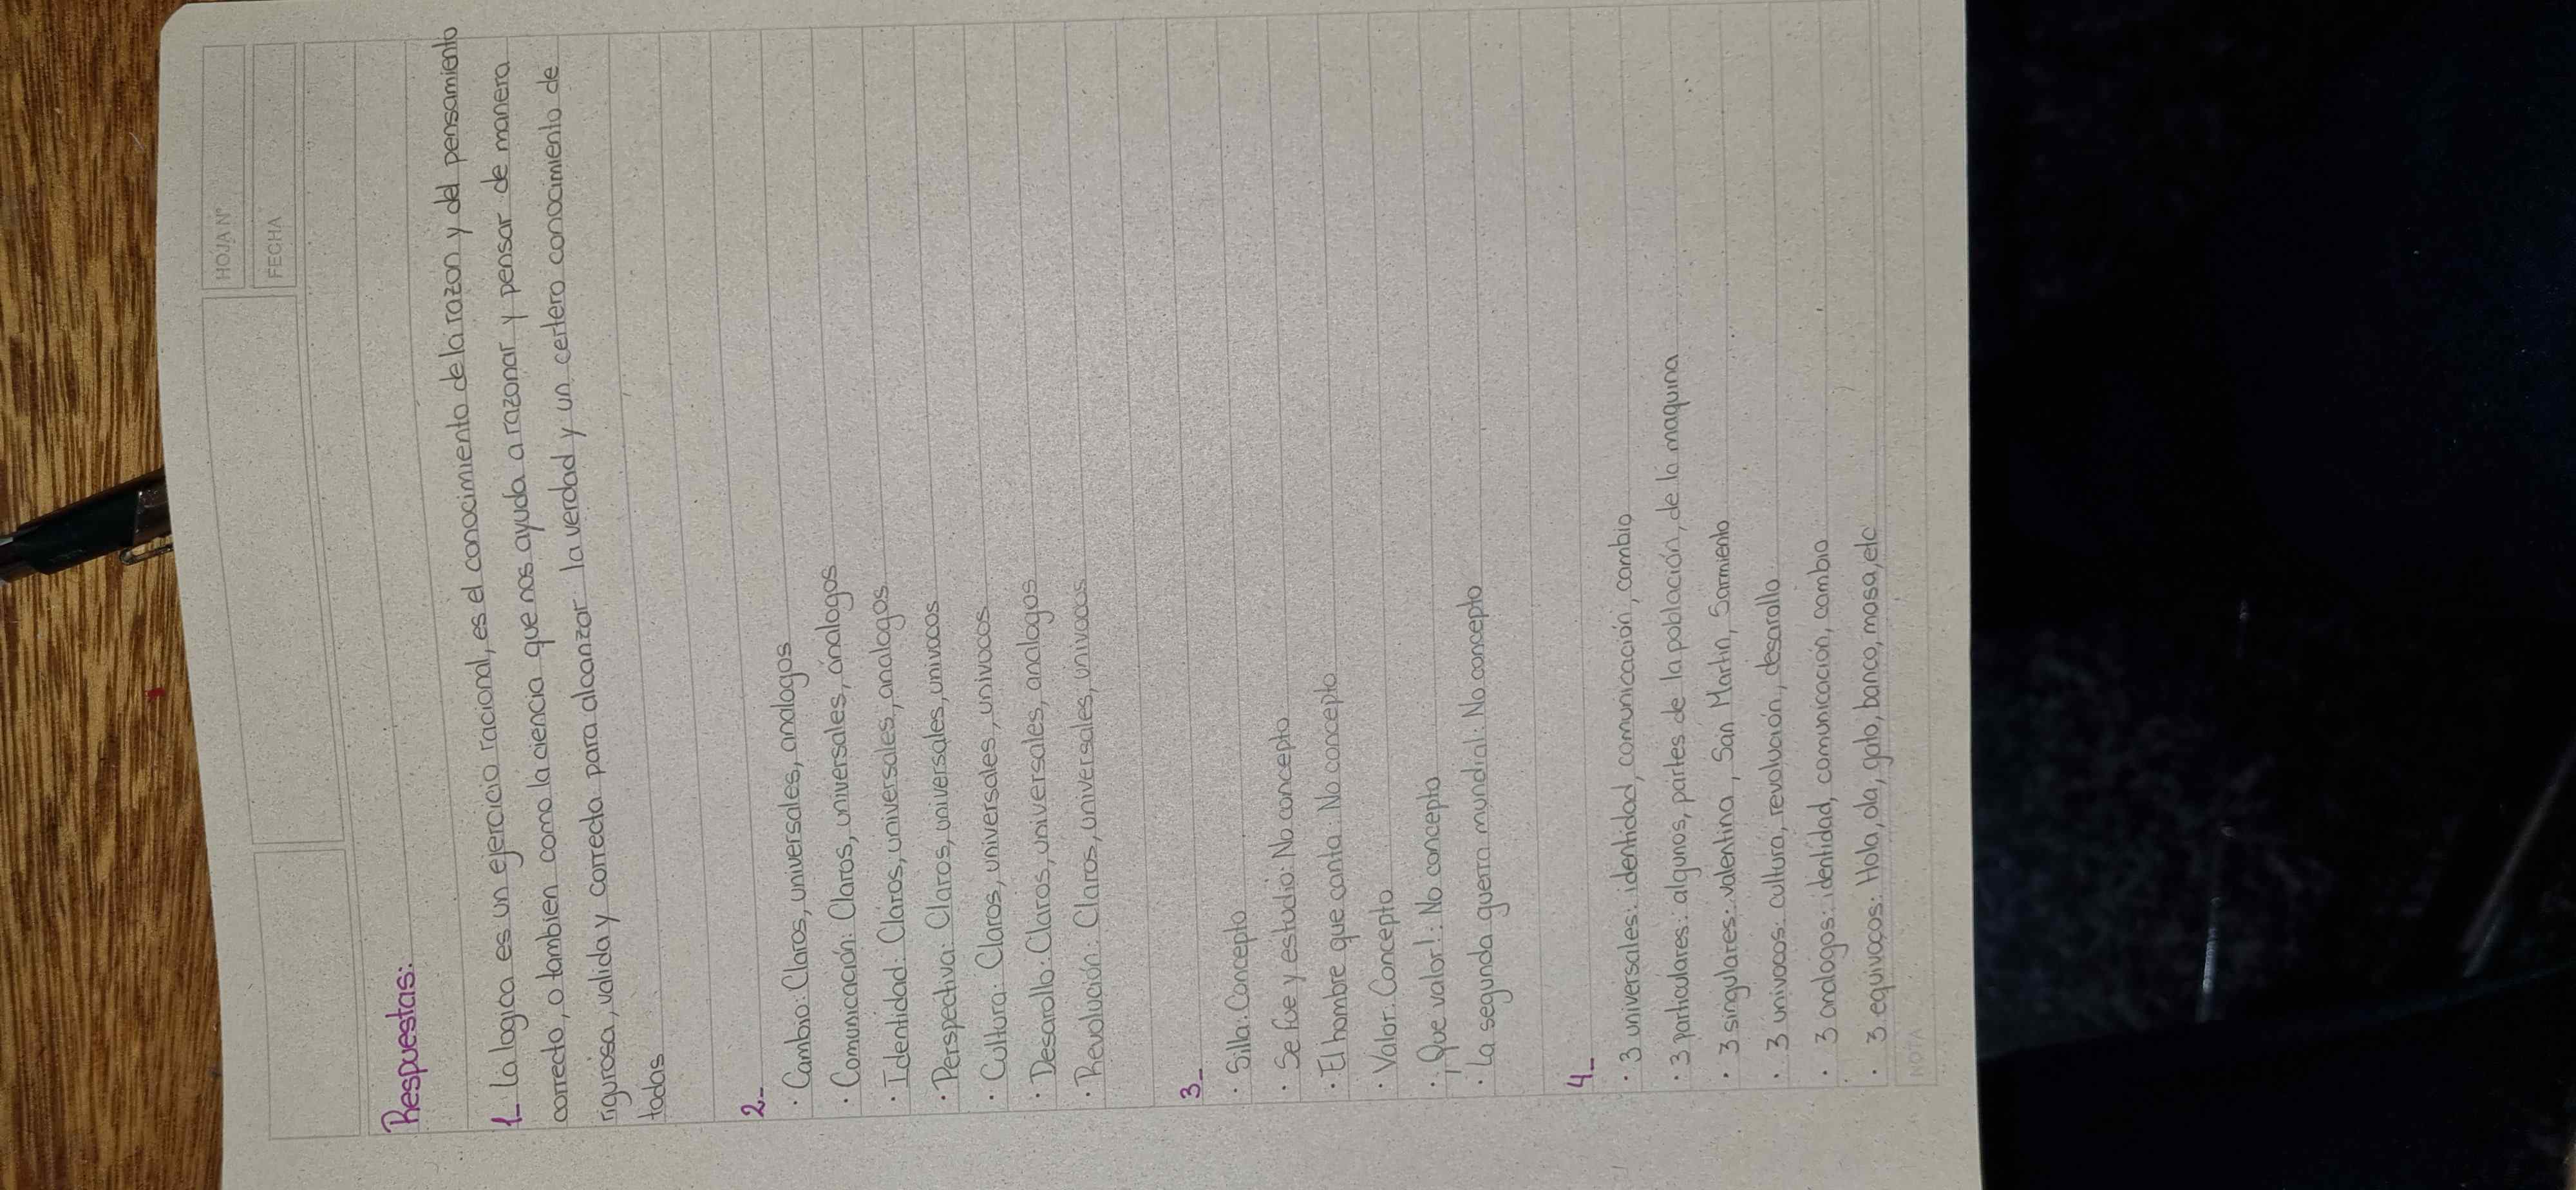 HOJA N°
FECHA
Respuestas:
1_ La logica es un ejercicio racional, es el conocimiento de la razon y del pensamiento
correcto, o tambien como la ciencia que nos ayuda a razonar y pensar de manera
rigurosa, valida y correcta para alcanzar la verdad y un certero conocimiento de
todas
2_
· Cambio: Claros, universales, analogos
· Comunicación: Claros, universales, analogos
· Identidad: Claros, universales, analogos
· Perspectiva: Claros, universales, univocos
· Cultura: Claros, universales, univocos
· Desarollo: Claros, universales, analogos
· Revolución: Claros, universales, univocos
3_
· Silla: Concepto
· Se fue y estudio: No concepto
· El hombre que canta: No concepto
· Valor: Concepto
· ¡Que valor!: No concepto
· La segunda guerra mundial: No concepto
4_
· 3 universales: identidad, comunicación, cambio
· 3 particulares: algunos, partes de la población, de la maquina
· 3 singulares: valentina, San Martin, Sarmiento
· 3 univocos: cultura, revolución, desarollo
· 3 analogos: identidad, comunicación, cambio
· 3 equivocos: Hola, ola, gato, banco, masa, etc
NOTA